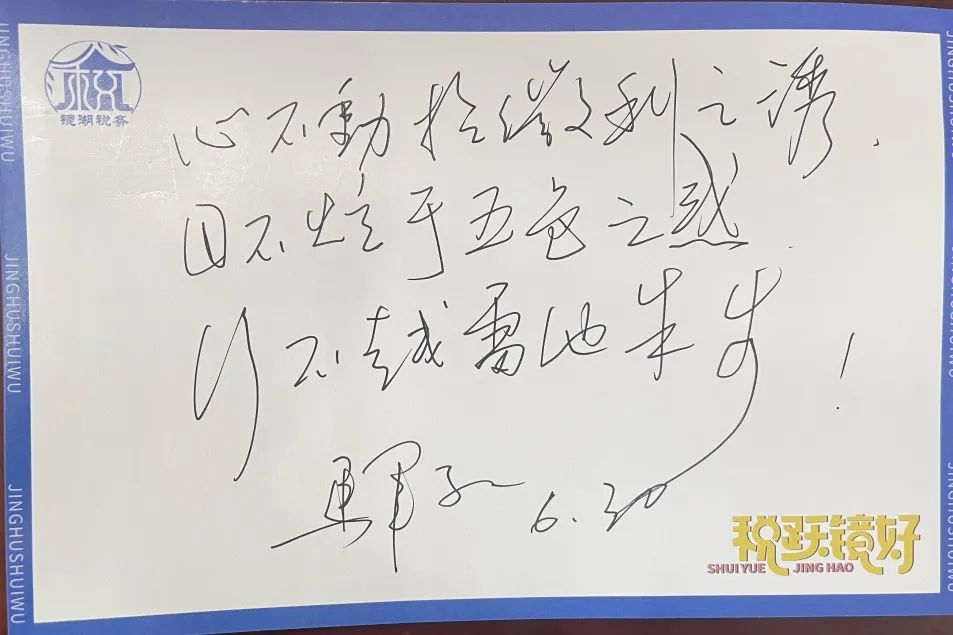 镜湖税务
心不動於微利之诱,
目不炫于五色之惑.
行不越雷池半步!
6.30
税跃镜好
SHUI YUE JING HAO
JINGHUSHUIWU
JINGHUSHUIWU
JINGHUSHUIWU
JINGHUSHUIWU
JINGHUSHUIWU